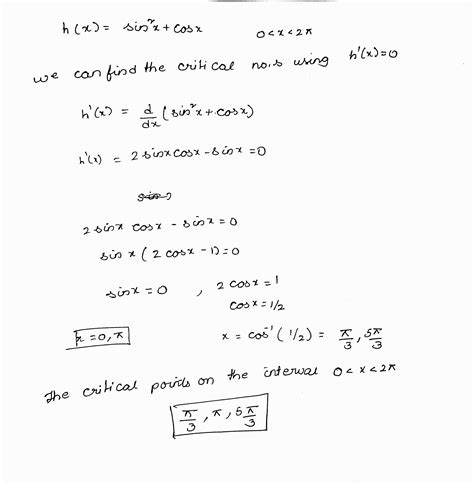 h(x) = sin²x + cosx 0<x<2π
we can find the critical no.s using h'(x)=0
h'(x) = d/dx (sin²x + cosx)
h'(x) = 2 sinx cosx - sinx = 0
2 sinx cosx - sinx = 0
sin x (2 cosx - 1) = 0
sinx = 0 , 2 cosx = 1
cosx = 1/2
x = 0, π x = cos⁻¹(1/2) = π/3, 5π/3
The critical points on the interval 0<x<2π
π/3, π, 5π/3